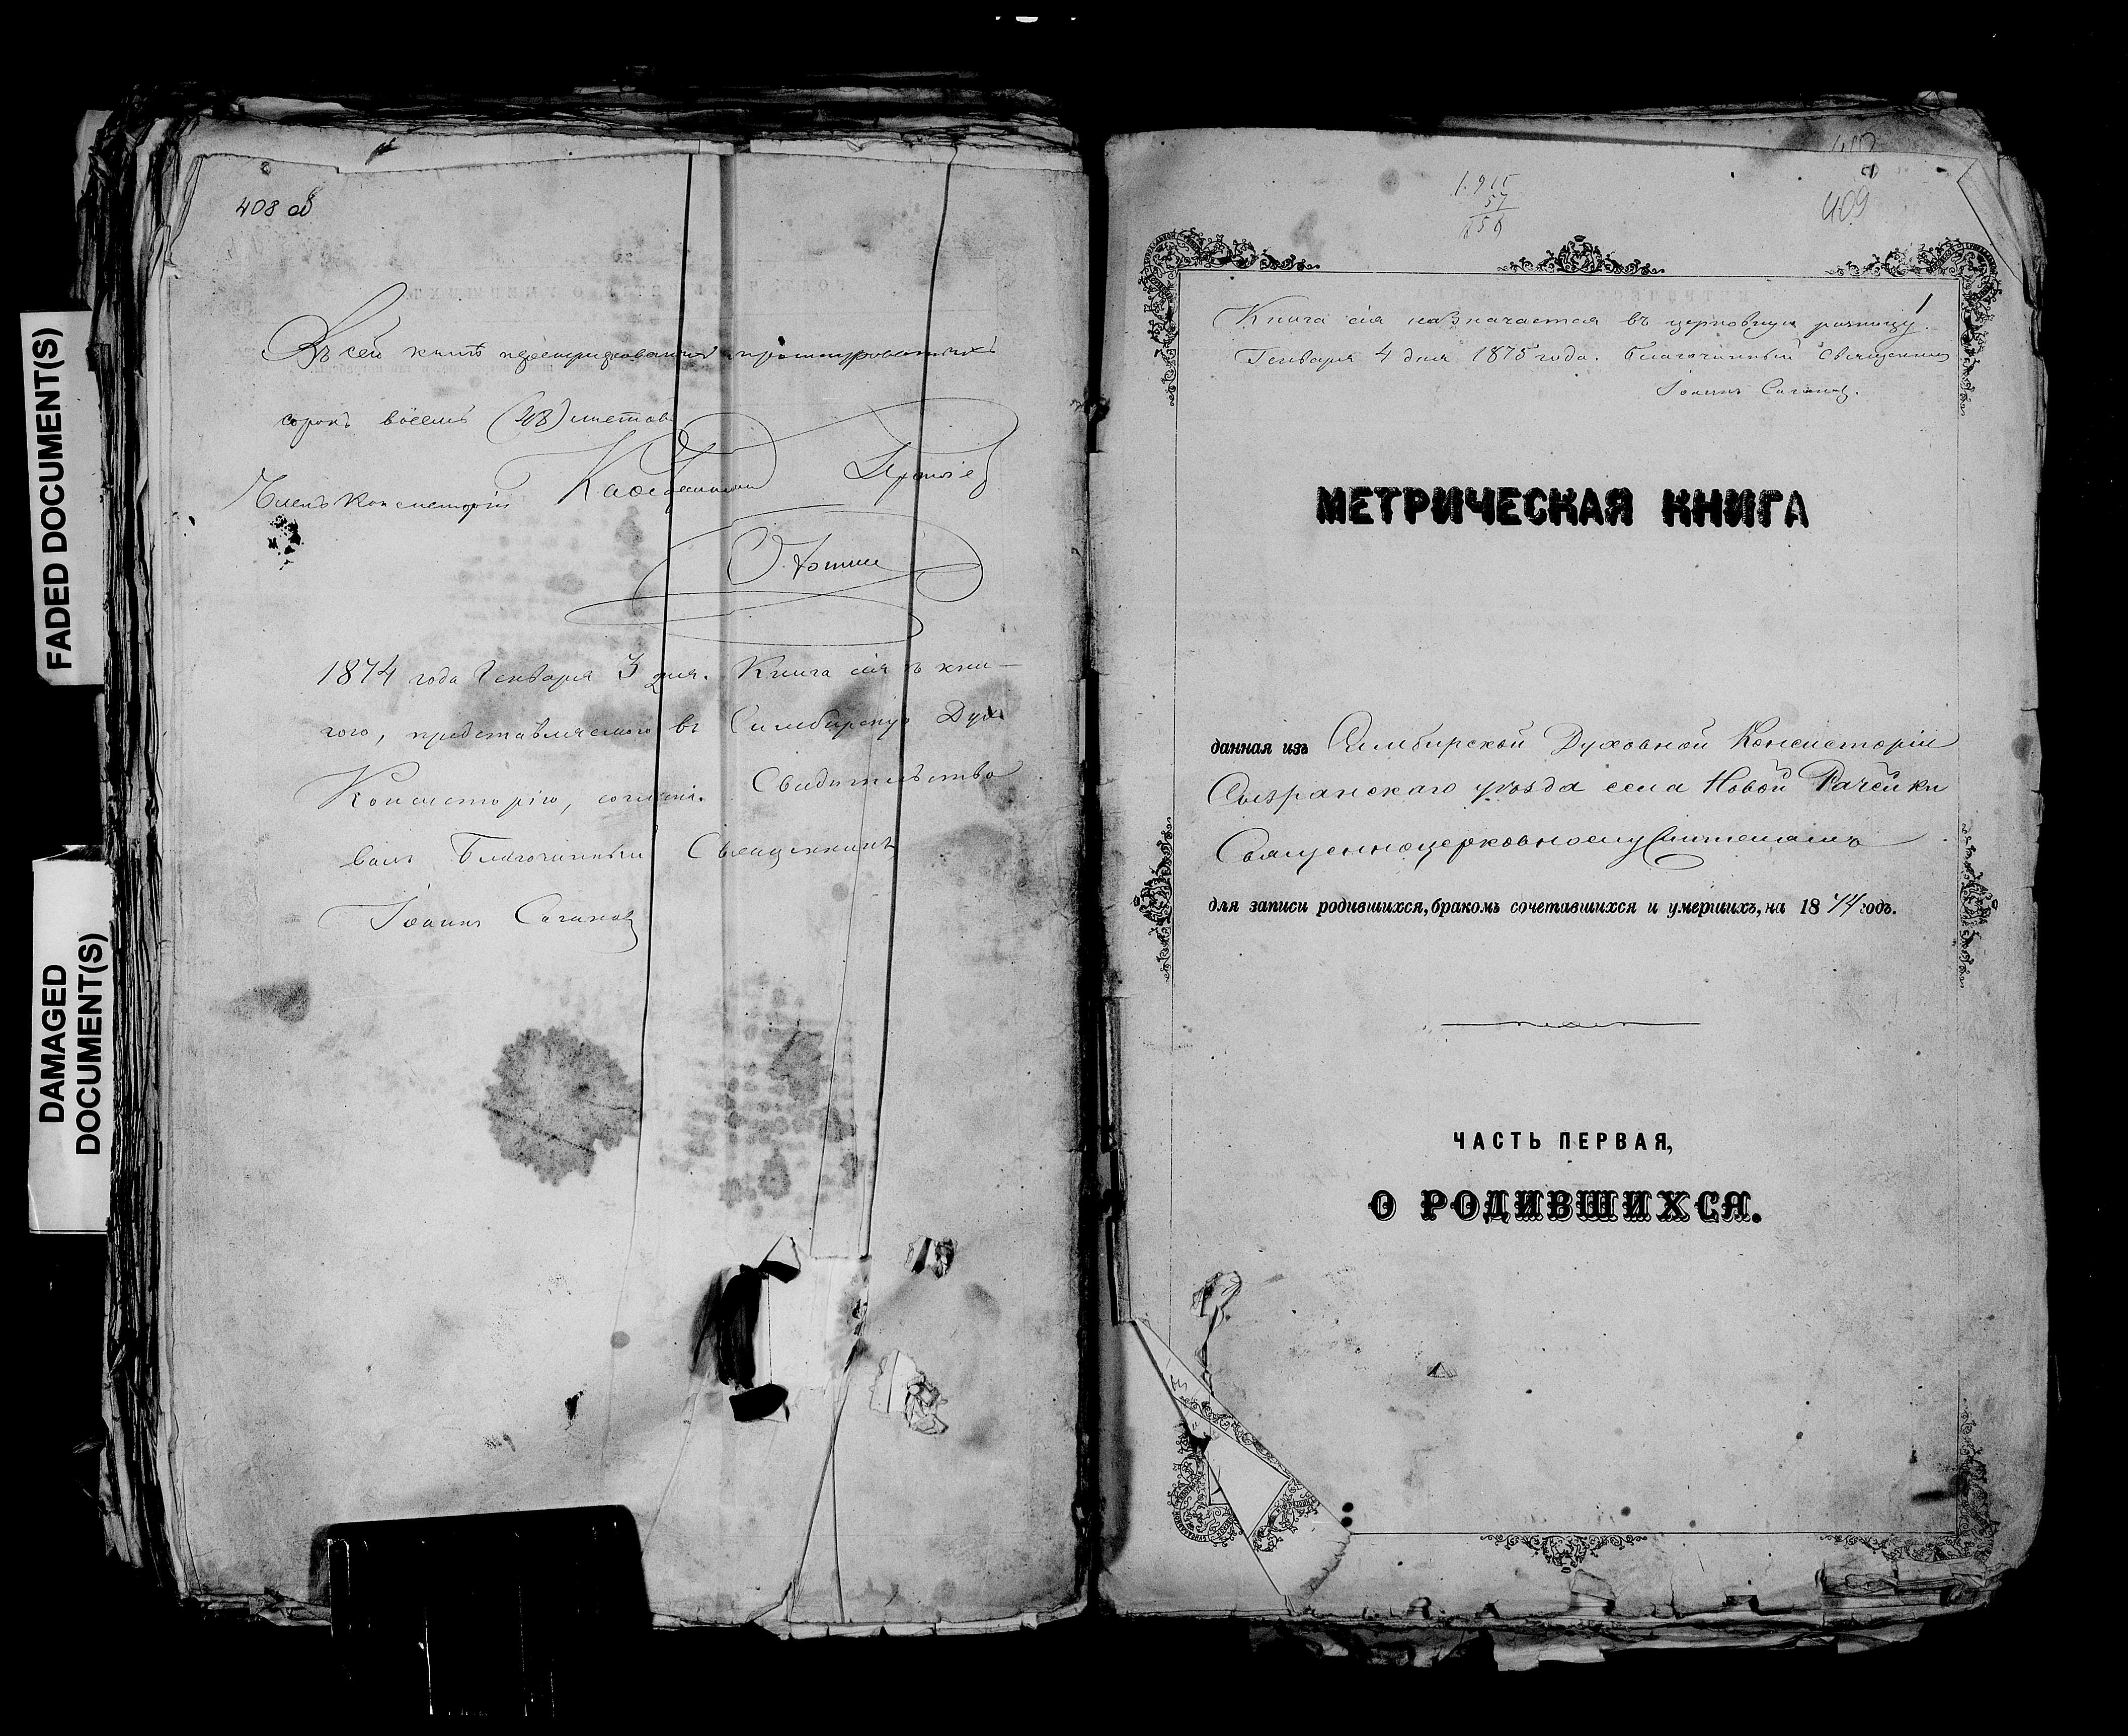 FADED DOCUMENT(S)
DAMAGED
DOCUMENT(S)
408 об
Въ сей книгѣ
сорокъ восемь (48) листовъ
Членъ Консисторіи Каѳедральный
1874 года Генваря 3 дня. Книга сія съ кни-
гою, представляемою въ Симбирскую Дух.
Консисторію, согласна. Свидѣтельство
валъ Благочинный Священникъ
Іоаннъ Сагановъ
409
1
Книга сія назначается въ церковную ризницу.
Генваря 4 дня 1875 года. Благочинный Священникъ
Іоаннъ Сагановъ.
МЕТРИЧЕСКАЯ КНИГА
данная изъ Симбирской Духовной Консисторіи
Сызранскаго уѣзда села Новой Рачейки
Священноцерковнослужителямъ
для записи родившихся, бракомъ сочетавшихся и умершихъ, на 1874 годъ.
ЧАСТЬ ПЕРВАЯ,
О РОДИВШИХСЯ.